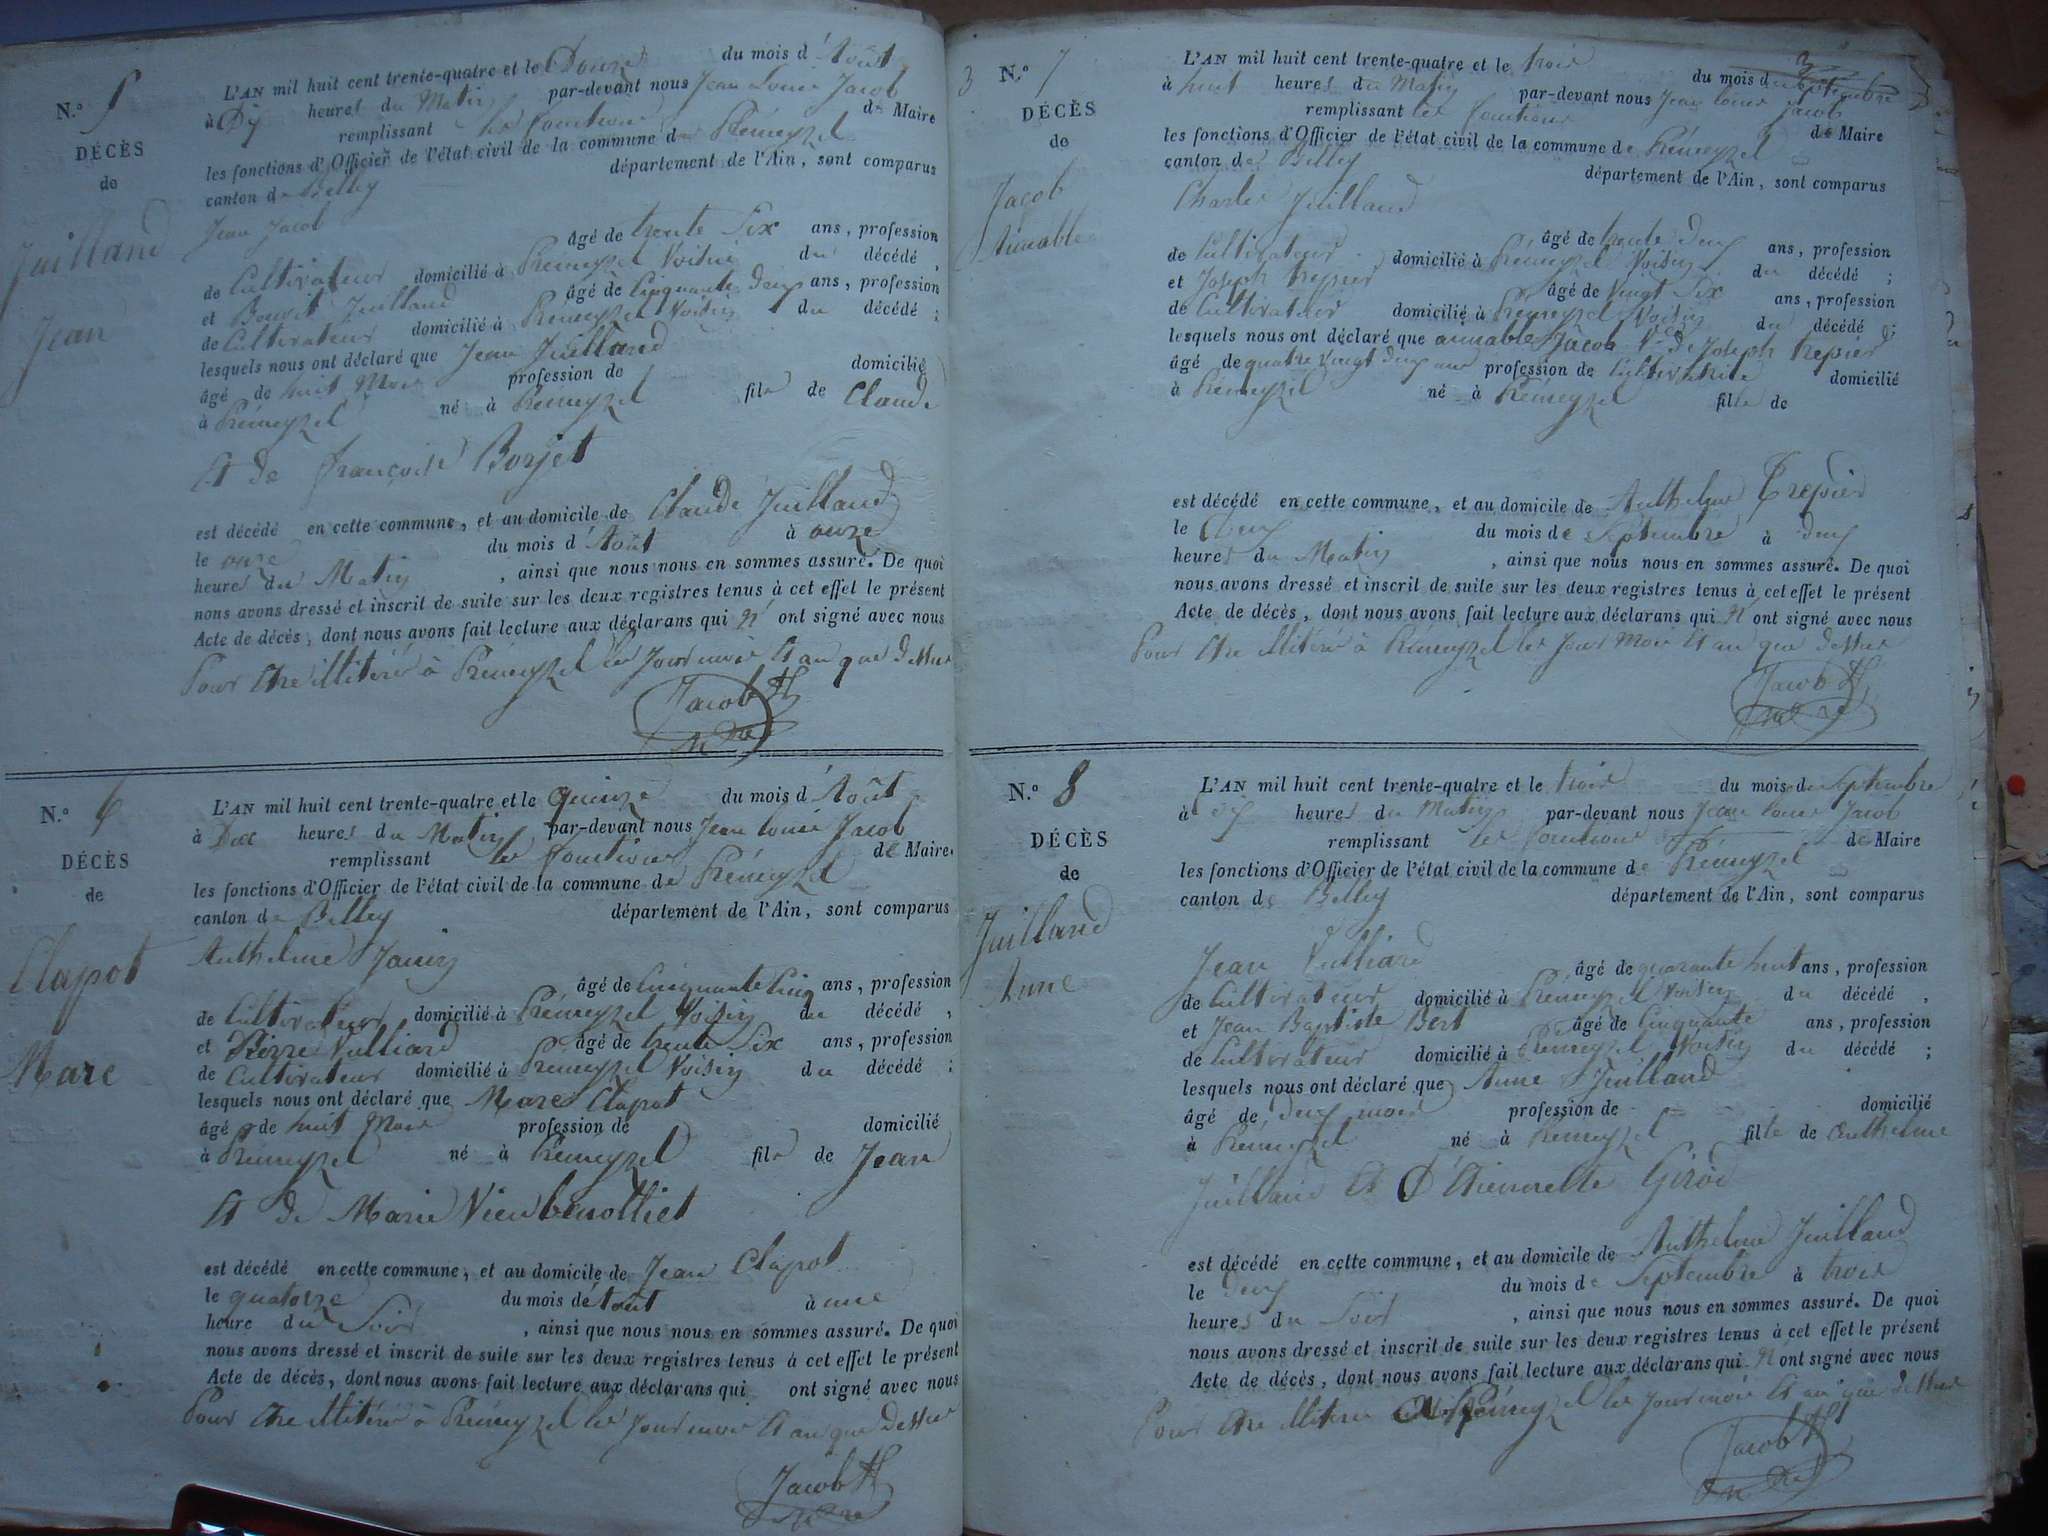 N.º 5
DÉCÈS
de
Juilland
Jean
L'AN mil huit cent trente-quatre et le Douze du mois d'Août
à Dix heures du Matin par-devant nous Jean Louis Jacob
remplissant les fonctions de Maire
les fonctions d'Officier de l'état civil de la commune de Prémeyzel
canton de Belley département de l'Ain, sont comparus
Jean Jacob
âgé de trente Six ans, profession
de Cultivateur domicilié à Prémeyzel Voisin du décédé,
et Benoit Juilland âgé de Cinquante Deux ans, profession
de Cultivateur domicilié à Prémeyzel Voisin du décédé;
lesquels nous ont déclaré que Jean Juilland
âgé de huit Mois profession de domicilié
à Prémeyzel né à Prémeyzel fils de Claude
Et de françoise Borjet
est décédé en cette commune, et au domicile de Claude Juilland
le onze du mois d'Août à onze
heures du Matin, ainsi que nous nous en sommes assuré. De quoi
nous avons dressé et inscrit de suite sur les deux registres tenus à cet effet le présent
Acte de décès, dont nous avons fait lecture aux déclarans qui n' ont signé avec nous
Pour Etre illitéré à Prémeyzel les Jour mois Et an que Dessus
Jacob
N.º 6
DÉCÈS
de
Clapot
Marc
L'AN mil huit cent trente-quatre et le quinze du mois d'Août
à Dix heures du Matin par-devant nous Jean Louis Jacob
remplissant les fonctions de Maire
les fonctions d'Officier de l'état civil de la commune de Prémeyzel
canton de Belley département de l'Ain, sont comparus
Anthelme Janin
âgé de Cinquante Cinq ans, profession
de Cultivateur domicilié à Prémeyzel Voisin du décédé,
et Pierre Vulliard âgé de trente Six ans, profession
de Cultivateur domicilié à Prémeyzel Voisin du décédé;
lesquels nous ont déclaré que Marc Clapot
âgé de huit Mois profession de domicilié
à Prémeyzel né à Prémeyzel fils de Jean
Et de Marie
est décédé en cette commune, et au domicile de Jean Clapot
le quatorze du mois de Août à une
heure du Soir, ainsi que nous nous en sommes assuré. De quoi
nous avons dressé et inscrit de suite sur les deux registres tenus à cet effet le présent
Acte de décès, dont nous avons fait lecture aux déclarans qui ont signé avec nous
Pour Etre illitéré à Prémeyzel les Jour mois Et an que Dessus
Jacob
3
N.º 7
DÉCÈS
de
Jacob
Aimable
L'AN mil huit cent trente-quatre et le trois du mois de Septembre
à huit heures du Matin par-devant nous Jean Louis Jacob
remplissant les fonctions de Maire
les fonctions d'Officier de l'état civil de la commune de Prémeyzel
canton de Belley département de l'Ain, sont comparus
Charles Juilland
âgé de trente Deux ans, profession
de Cultivateur domicilié à Prémeyzel Voisin du décédé;
et Joseph trepier âgé de Vingt Six ans, profession
de Cultivateur domicilié à Prémeyzel Voisin du décédé;
lesquels nous ont déclaré que aimable Jacob Vve de Joseph trepier
âgé de quatre Vingt Deux ans profession de Cultivatrice domicilié
à Prémeyzel né à Prémeyzel fille de
est décédé en cette commune, et au domicile de Anthelme Trepier
le Deux du mois de Septembre à deux
heures du Matin, ainsi que nous nous en sommes assuré. De quoi
nous avons dressé et inscrit de suite sur les deux registres tenus à cet effet le présent
Acte de décès, dont nous avons fait lecture aux déclarans qui n' ont signé avec nous
Pour Etre illitéré à Prémeyzel les Jour Mois Et an que Dessus
Jacob
N.º 8
DÉCÈS
de
Juilland
Anne
L'AN mil huit cent trente-quatre et le trois du mois de Septembre
à dix heures du Matin par-devant nous Jean Louis Jacob
remplissant les fonctions de Maire
les fonctions d'Officier de l'état civil de la commune de Prémeyzel
canton de Belley département de l'Ain, sont comparus
Jean Vulliard
âgé de quarante huit ans, profession
de Cultivateur domicilié à Prémeyzel Voisin du décédé,
et Jean Baptiste Bert âgé de Cinquante ans, profession
de Cultivateur domicilié à Prémeyzel Voisin du décédé;
lesquels nous ont déclaré que Anne Juilland
âgé de deux mois profession de domicilié
à Prémeyzel né à Prémeyzel fille de Anthelme
Juilland Et D'Etiennette Girod
est décédé en cette commune, et au domicile de Anthelme Juilland
le Deux du mois de Septembre à trois
heures du Soir, ainsi que nous nous en sommes assuré. De quoi
nous avons dressé et inscrit de suite sur les deux registres tenus à cet effet le présent
Acte de décès, dont nous avons fait lecture aux déclarans qui n' ont signé avec nous
Pour Etre illitéré à Prémeyzel les Jour mois Et an que Dessus
Jacob